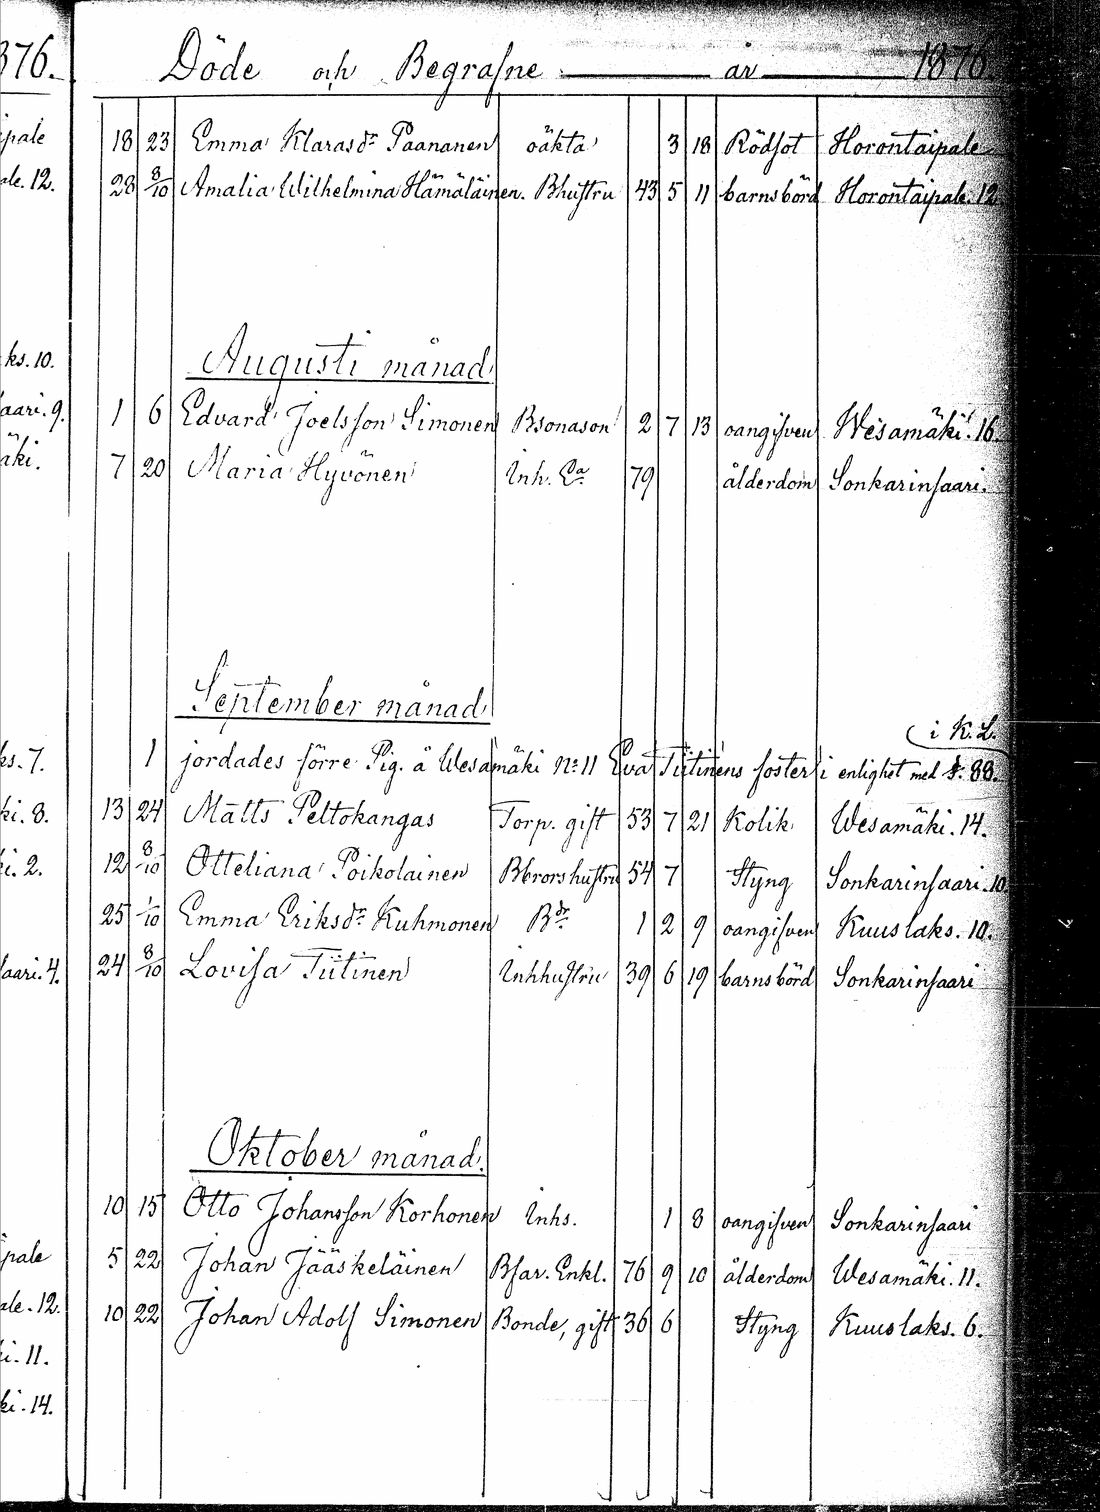 376.
Döde och Begrafne år 1876.
ipale
18 23 Emma Klarasdr Paananen oäkta 3 18 Rödsot Horontaipale
ale. 12.
28 8/10 Amalia Wilhelmina Hämäläinen. Bhustru 43 5 11 barnsbörd Horontaipale. 12
ks. 10.
Augusti månad
aari. 9.
1 6 Edvard Joelsson Simonen Bsonason 2 7 13 oangifven Wesamäki. 16.
äki.
7 20 Maria Hyvönen Inh. Ea 79 ålderdom Sonkarinsaari.
September månad
i K. L.
ks. 7.
1 jordades förre Pig. å Wesamäki No 11 Eva Tiitinens foster i enlighet med §. 88.
ki. 8.
13 24 Matts Peltokangas Torp. gift 53 7 21 Kolik Wesamäki. 14.
ki. 2.
12 8/10 Otteliana Poikolainen Bbrorshustru 54 7 Styng Sonkarinsaari. 10
25 1/10 Emma Eriksdr Kuhmonen Bdr 1 2 9 oangifven Kuuslaks. 10.
saari. 4.
24 8/10 Lovisa Tiitinen Inhhustru 39 6 19 barnsbörd Sonkarinsaari
Oktober månad.
10 15 Otto Johansson Korhonen Inhs. 1 8 oangifven Sonkarinsaari
ipale
5 22 Johan Jääskeläinen Bfar. Enkl. 76 9 10 ålderdom Wesamäki. 11.
ale. 12.
10 22 Johan Adolf Simonen Bonde, gift 36 6 Styng Kuuslaks. 6.
ki. 11.
ki. 14.